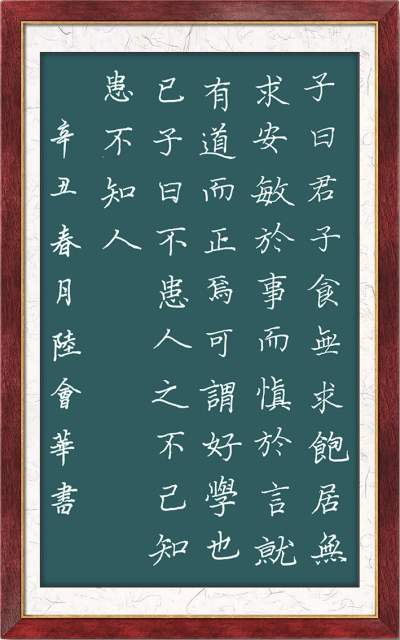 子曰君子食無求飽居無
求安敏於事而慎於言就
有道而正焉可謂好學也
已子曰不患人之不己知
患不知人
辛丑春月陸會華書